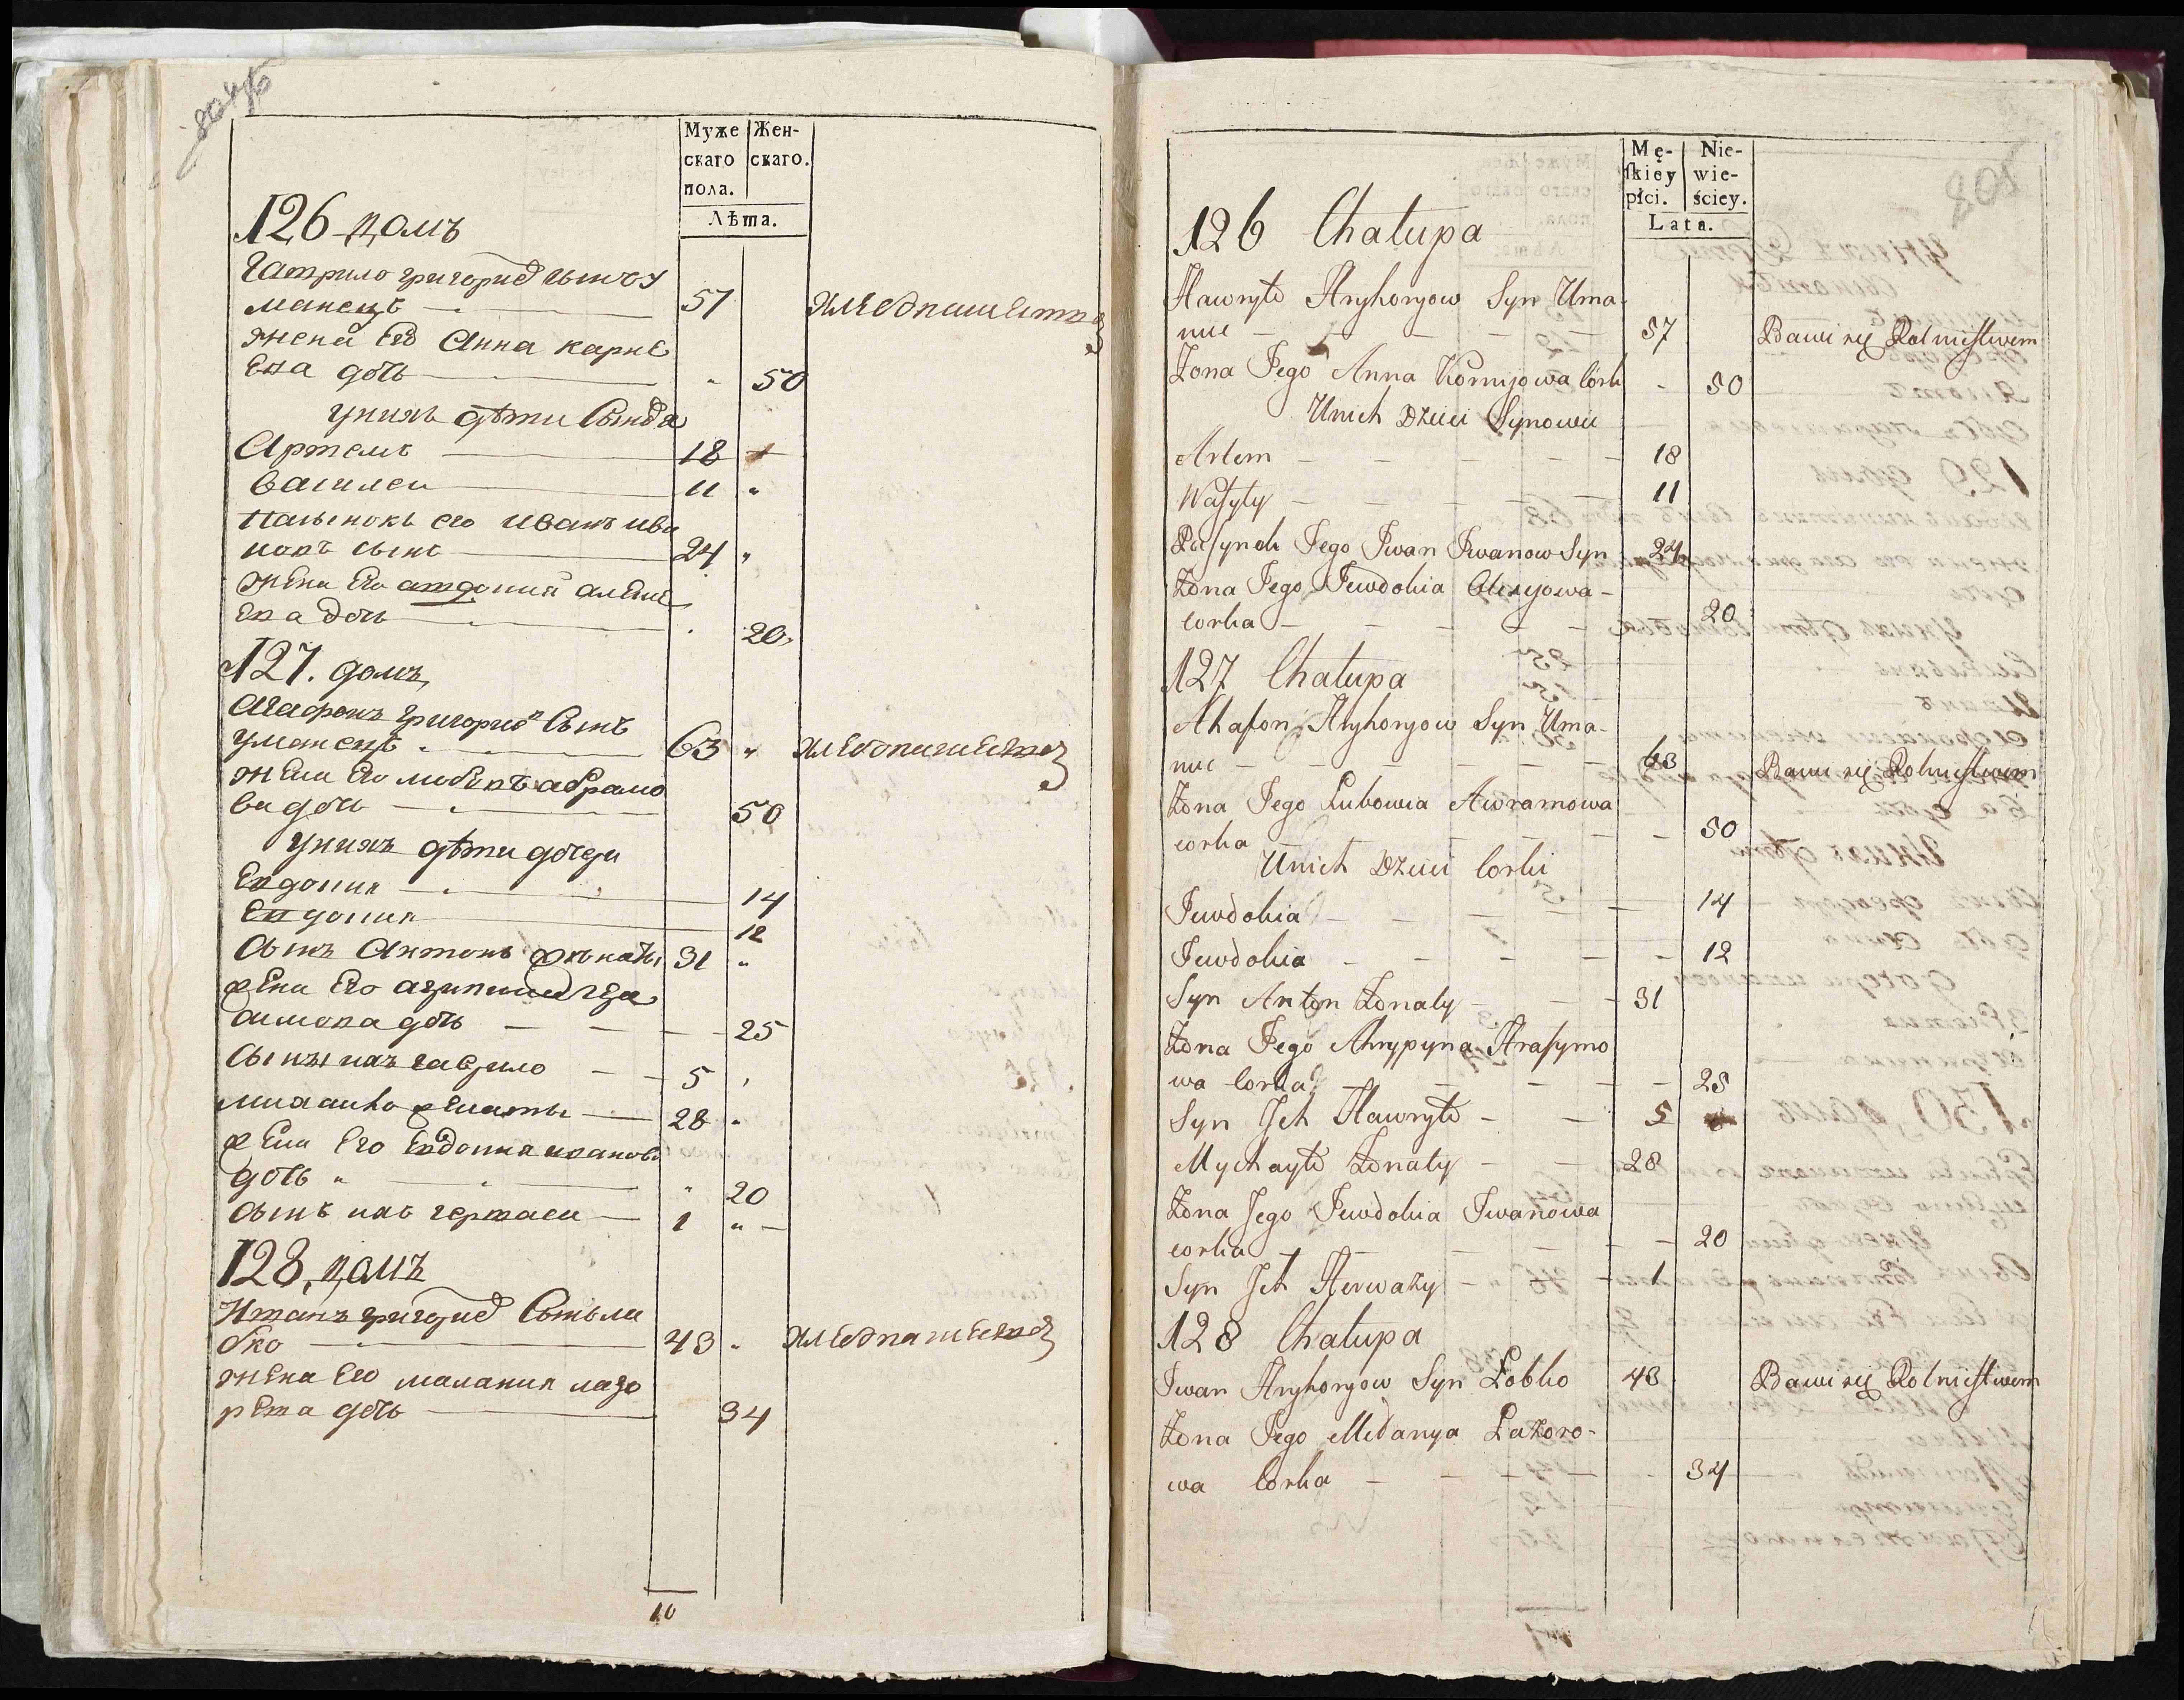 Муже Жен-
скаго скаго.
пола.
Лѣта.
126 домъ
Гаврило григориев сынъ у
манецъ 57 хлебопашество
жена Его Анна карне
Ева дочь " 50
униxъ дѣти Сынове
Артемъ 18
василеи 11 "
Пасынокъ его иванъ ива
новъ сынъ 24 "
жена Его
Ева дочь 20
127. домъ
Агафонъ григориев Сынъ
уманецъ 63 " хлебопашество
жена Его любовъ абрамо
ва дочь 50
унихъ дѣти дочери
Евдокия 14
Евдокия 12
сынъ Антонъ женаты 31 "
жена Его агрипина гера
симова дочь 25
Сынъ ихъ гаврило 5
михаило женаты 28 "
жена Его Евдокия иванова
дочь " " 20
сынъ ихъ гервасеи 1 "
128 домъ
Иванъ григориев Сынъ ло
бко 43 " хлебопашество
жена Его малания лазо
рева дочь 34
10
Mę- Nie-
ſkiey wie-
płci. ściey.
Lata.
208
126 Chałupa
Hawryło Hryhoryow Syn Uma-
nec 57 Bawi się Rolnictwem
Żona Jego Anna Kornijowa Córk - 50
Unich Dzieci Synowie
Artem 18
Wasyly 11
Pasynok Jego Iwan Iwanow Syn 24
Żona Jego Jewdokia Olexijowa-
corka 20
127 Chałupa
Ahafon Hryhoryow Syn Uma-
nec 63 Bawi się Rolnictwem
Żona Jego Lubowia Awramowa
corka - 50
Unich Dzieci Corki
Jewdokia 14
Jewdokia - 12
Syn Anton Żonaty 31
Żona Jego Ahrypyna Harasymo
wa Corka - 25
Syn Jch Hawryło 5
Mychayło Żonaty 28
Żona Jego Jewdokia Iwanowa
corka - 20
Syn Jch Herwazy 1
128 Chałupa
Iwan Hryhoryow Syn Łobko 43 Bawi się Rolnictwem
Żona Jego Mełanya Łazoro-
wa Corka - 34